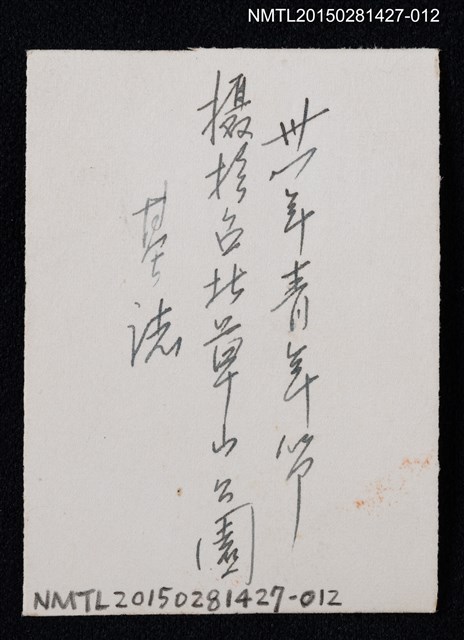 NMTL20150281427-012
卅八年青年节
摄扵台北草山公園
誌
NMTL20150281427-012